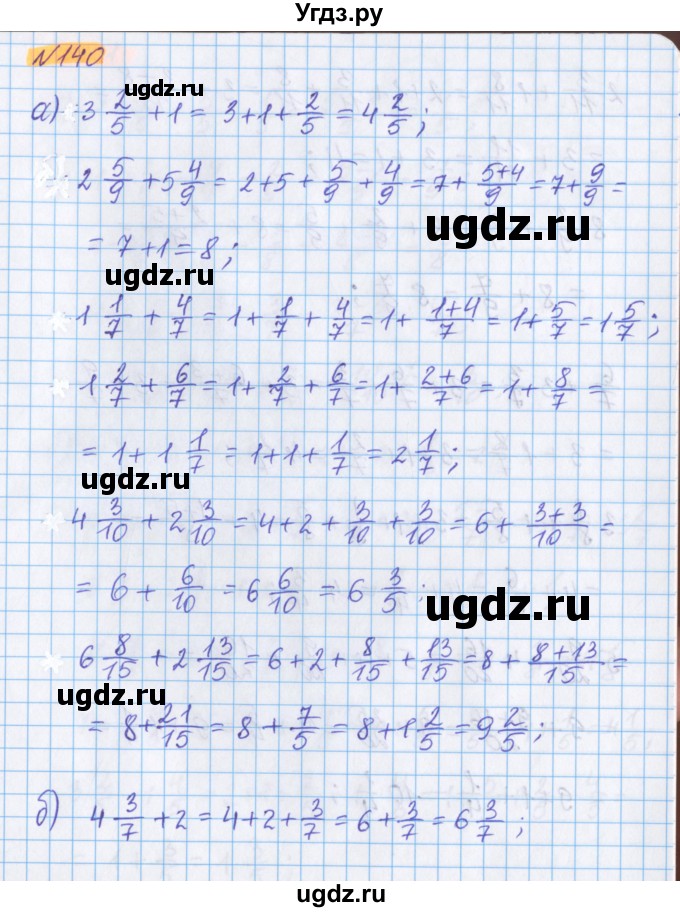 Угдз.ру
№140
ugdz.ru
а) 3 2/5 + 1 = 3+1+ 2/5 = 4 2/5;
2 5/9 + 5 4/9 = 2+5+ 5/9 + 4/9 = 7+ (5+4)/9 = 7+ 9/9 =
ugdz.ru
= 7+1 = 8;
ugdz.ru
1 1/7 + 4/7 = 1+ 1/7 + 4/7 = 1+ (1+4)/7 = 1+ 5/7 = 1 5/7;
1 2/7 + 6/7 = 1+ 2/7 + 6/7 = 1+ (2+6)/7 = 1+ 8/7 =
= 1+ 1 1/7 = 1+1+ 1/7 = 2 1/7;
ugdz.ru
4 3/10 + 2 3/10 = 4+2+ 3/10 + 3/10 = 6+ (3+3)/10 =
= 6 + 6/10 = 6 6/10 = 6 3/5;
ugdz.ru
6 8/15 + 2 13/15 = 6+2+ 8/15 + 13/15 = 8+ (8+13)/15 =
ugdz.ru
= 8+ 21/15 = 8 + 7/5 = 8+1 2/5 = 9 2/5;
б) 4 3/7 + 2 = 4+2+ 3/7 = 6+ 3/7 = 6 3/7;
ugdz.ru
ugdz.ru